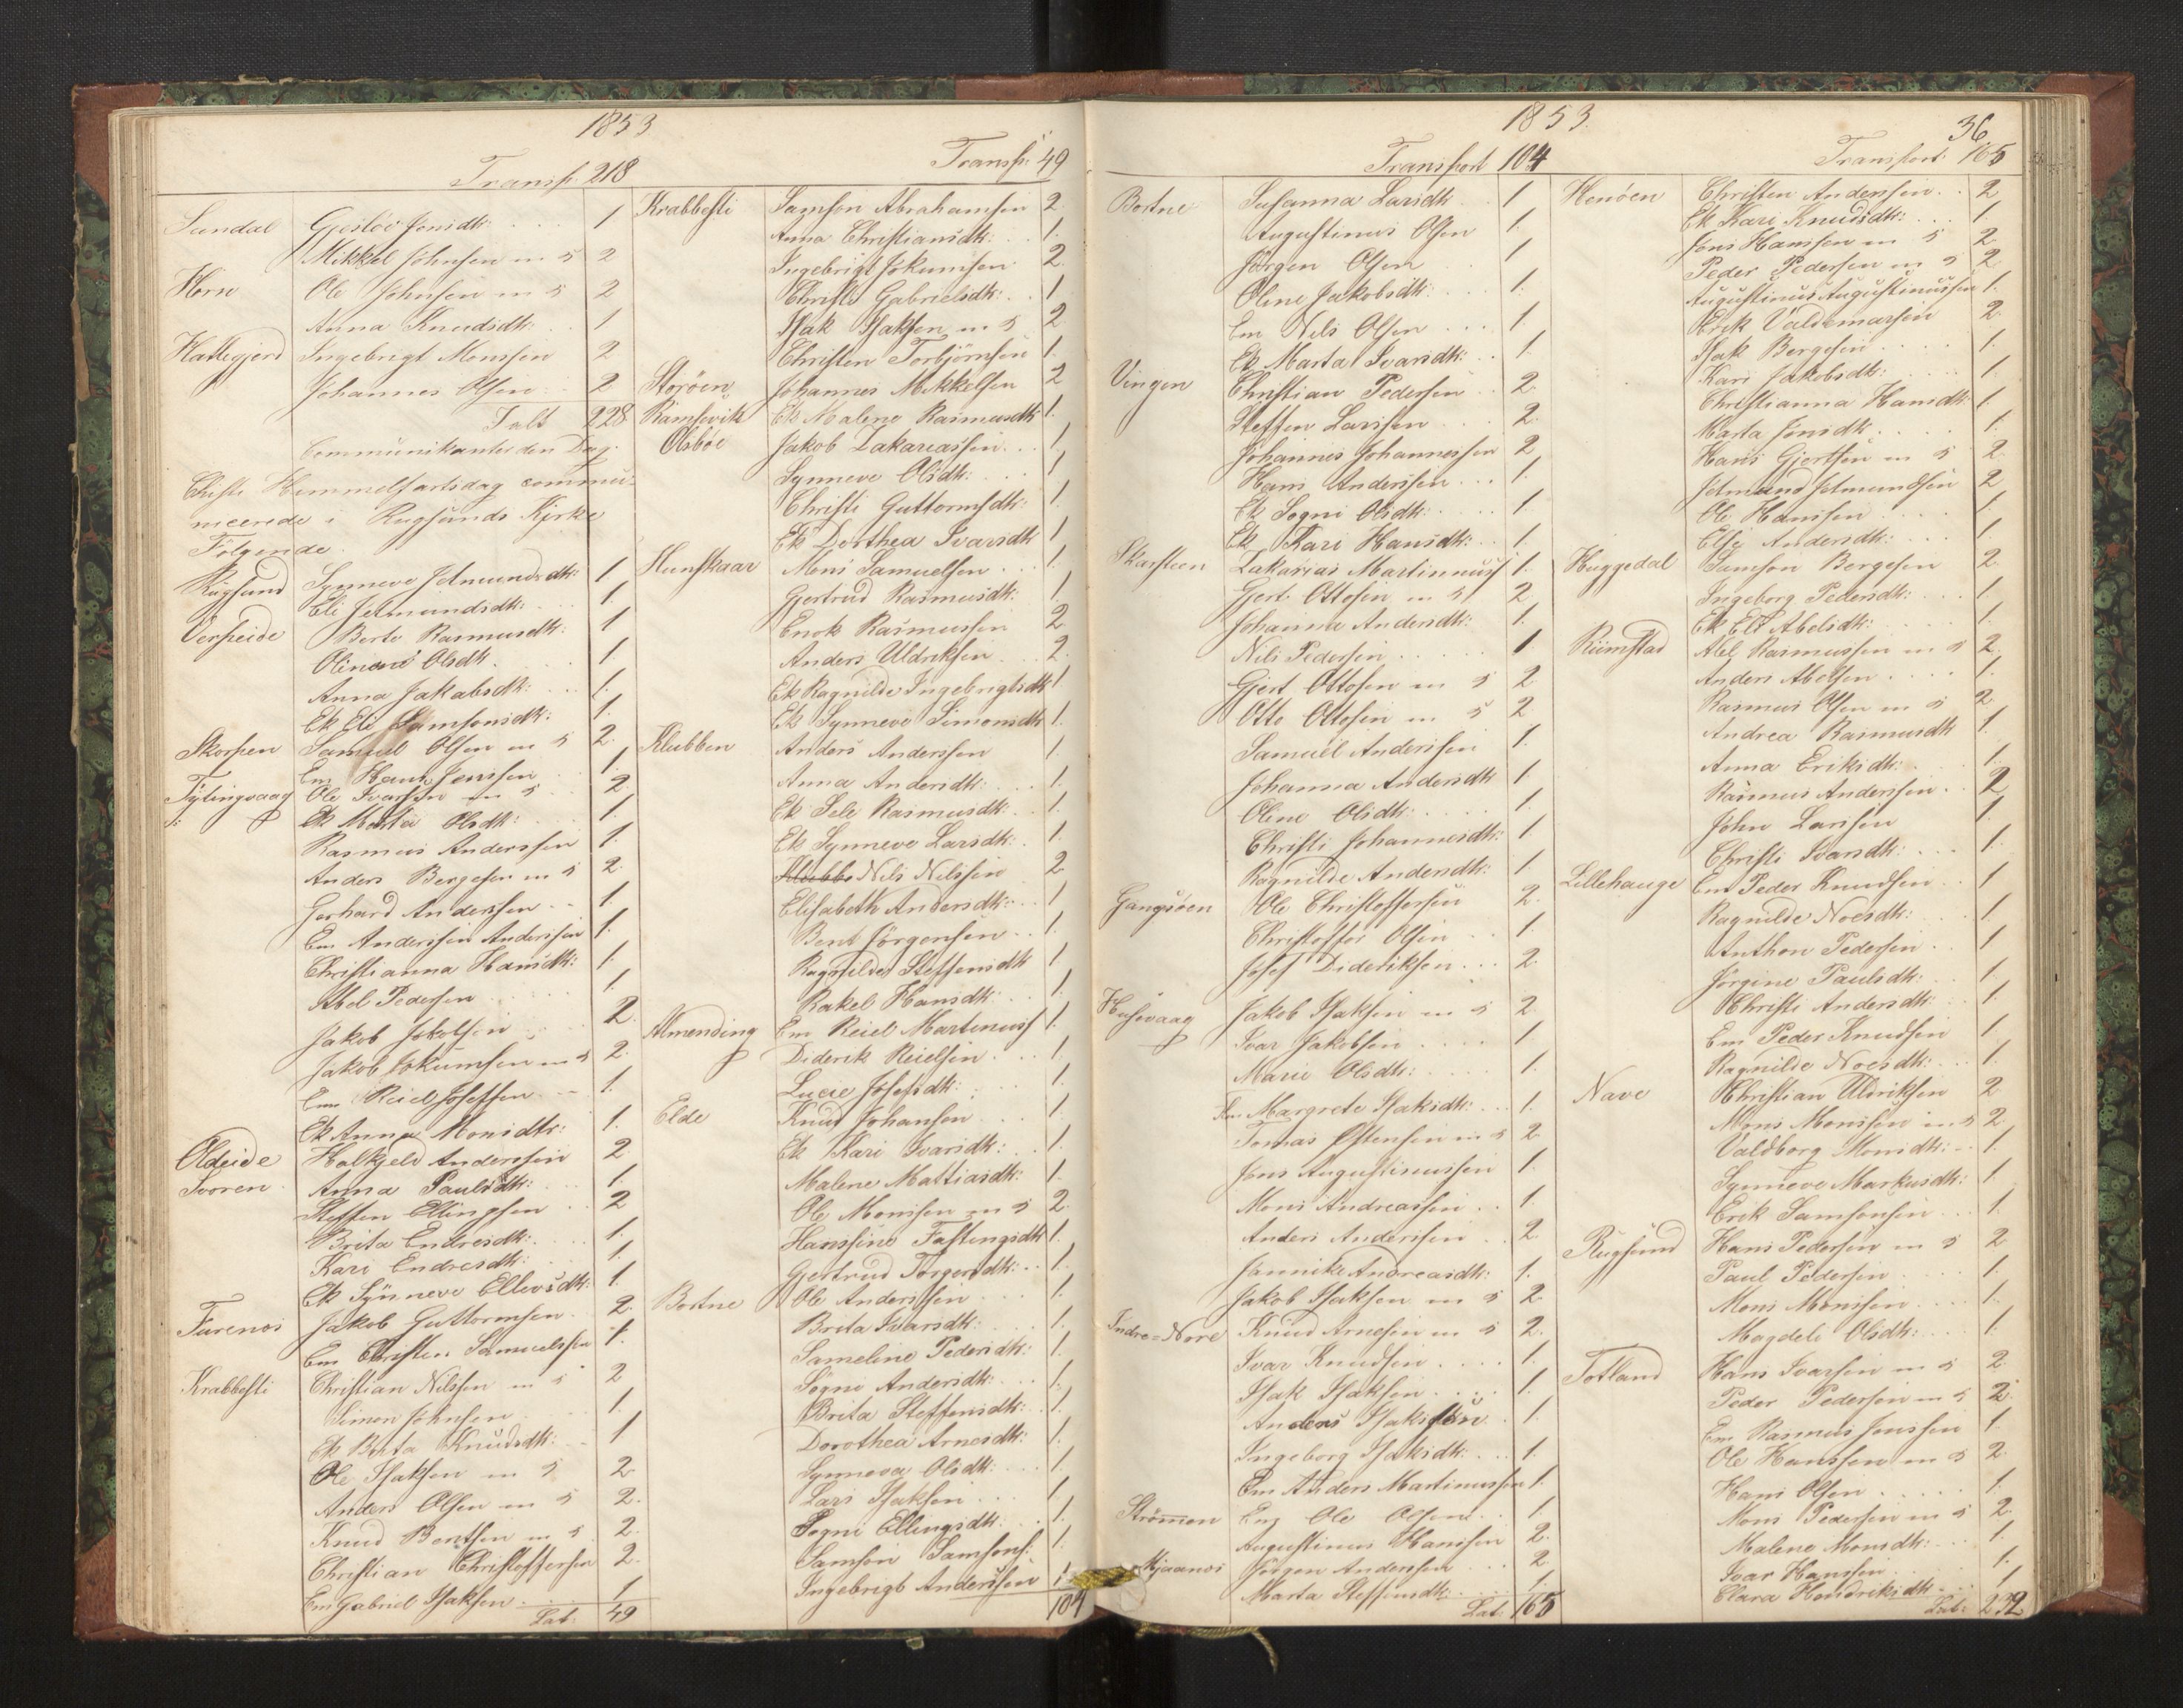 1853
Transp. 218
Sundal Gjeslöv Jensdtr: 1
Mikkel Johnsen m 5 2
Horn Ole Johnsen m 5 2
Anna Knudsdtr: 1
Hattegjerd Ingebrigt Monssen 2
Johannes Olsen 2
Talt 228
Communikanter den Dag.
Christi Himmelfartsdag commu-
niceerede i Rugsunds Kjrke
Følgende
Rugsund Synneve Jetmundsdtr: 1
Eli Jetmundsdtr: 1
Verpeide Berte Rasmusdtr: 1
Oline Olsdtr. 1
Anna Jakabsdtr: 1.
Ek Eli Samsonsdtr: 1.
Skorpen Samuel Olsen m 5 2.
Em Hans Jenssen 1.
Tytingvaag Ole Ivarsen m 5 2
Ek Marta Olsdtr: 1.
Rasmus Anderssen 1.
Anders Bergesen m 5 2.
Gerhard Anderssen 1.
Em Anderssen Anderssen 1.
Christianna Hansdtr: 1.
Abel Pedersen 1.
Jakob 2.
Jakob Jokumsen m 5 2.
Em Reiel Josefsen 1.
Ek Anna Monsdtr: 1.
Oldeide Halkjeld Anderssen 2
Tvoren Anna Paulsdtr: 1.
Steffen Ellingsen 2
Brita Endresdtr: 1.
Kari Endresdtr: 1.
Ek Synneve Ellevsdtr: 1.
Furenes Jakob Guttormsen 2.
Em Christen Samuelssen 1.
Krabbesti Christian Nilssen m 5 2
Simon Johnsen 1.
Ek Berta Knudsdtr: 1
Ole Isaksen m 5 2
Anders Olsen m 5 2.
Knud Bentsen m 5 2.
Christian Christoffersen 2.
Em Gabriel Isaksen 1
Lat: 49
Transp: 49
Krabbesti Samson Abrahamsen 2.
Anna Christiansdtr: 1.
Ingebrigt Jokumsen 2.
Christi Gabrielsdtr: 1
Isak Isaksen m 5 2
Christen Torbjörnsen 1.
Storöen Johannes Mikkelsen 2
Ramsevik Ek Malene Rasmusdtr 1.
Olsböe Jakob Zakariassen 1.
Synneve Olsdtr: 1
Christi Guttormsdtr: 1.
Ek Dorthea Ivarsdtr 1
Hunskaar Mons Samuelsen 1.
Gjertrud Rasmusdtr: 1
Enok Rasmussen 2
Anders Uldriksen 2.
Ek Ragnilde Ingebrigtsdtr 1
Ek Synneve Simonsdtr 1.
Klubben Anders Anderssen 1.
Anna Andersdtr: 1.
Ek Sele Rasmusdtr: 1.
Ek Synneve Larsdtr: 1.
Klubbe Nils Nilssen 2
Elisabeth Andersdtr: 1
Bent Jörgensen 1.
Ragnilde Steffensdtr 1
Rakel Hansdtr: 1.
Almending Em Reiel Martinuss 1.
Diderik Reielsen 1.
Lucie Josefsdtr: 1.
Elde Knud Johansen 1.
Ek Kari Ivarsdtr: 1.
Malene Mattiasdtr: 1.
Ole Monssen m 5 2.
Hanssine Fastingsdtr 1.
Gjertrud Torgersdtr: 1.
Bortne Ole Anderssen 1.
Brita Ivarsdtr: 1.
Sameline Pedersdtr: 1.
Sögni Andersdtr: 1.
Brita Steffensdtr: 1.
Dorothea Arnesdtr: 1.
Synneva Olsdtr: 1.
Lars Isaksen 1.
Sogni Ellingsdtr: 1.
Samson Samsons: 1.
Ingebrigt Anderssen 1.
104
1853.
36
Transport 104
Bortne Susanna Larsdtr 1.
Augustinus Olsen 1.
Jörgen Olsen 1
Oline Jakobsdtr: 1.
Em Nils Olsen 1.
Ek Marta Ivarsdtr: 1.
Vingen Christian Pedersen 2.
Steffen Larssen 2.
Johannes Johannessen 2
Hans Anderssen 1.
Ek Sogni Olsdtr: 1.
Ek Kari Hansdtr: 1.
Skarsteen Zakarias Martinnuss 1.
Gjert Ottosen m 5 2
Johanna Andersdtr: 1.
Nils Pedersen 1
Gjert Ottosen m 5 2
Otto Ottosen m 5 2
Samuel Anderssen 1.
Johanna Andersdtr 1.
Oline Olsdtr: 1.
Christi Johannesdtr: 1.
Ragnilde Andersdtr: 1
Gangsöen Ole Christoffersen 2.
Christoffer Olsen 1.
Josef Dideriksen 2.
Husevaag Jakob Isaksen m 5 2
Ivar Jakobsen 1.
Marie Olsdtr: 1.
Em Margrete Isaksdtr: 1.
Tomas Østensen m 5 2.
Jens Augustinussen 1.
Mons Andreassen 1.
Anders Anderssen 2.
Jannike Andreasdtr: 1.
Jakob Isaksen m 5 2.
Indre=Nore Knud Arnesen m 5 2.
Ivar Knudsen 1.
Isak Isaksen 1.
Anders Isaksen 1.
Ingeborg Isaksdtr: 1.
Em Anders Martinussen 1.
Strömmen Em Ole Olsen 1.
Augustinus Hanssen 2.
Mjaanes Jörgen Anderssen 2.
Marta Steffensdtr: 1.
Lat: 165
Transport 165
Henöen Christen Anderssen 2
Ek Kari Knudsdtr: 1
Jens Hanssen m 5 2
Peder Pedersen m 5 2
Augustinus Augustinussen 1.
Erik Valdemarsen 2
Isak Bergesen 1.
Kari Jakobsdtr: 1.
Christianna Hansdtr 1.
Marta Jensdtr 1.
Hans Gjertsen m 5 2.
Jetmund Jetmundsen 2
Ole Hanssen 1.
Elsi Andersdtr: 1.
Huggedal Samson Bergesen 2.
Ingeborg Pedersdtr: 1.
Ek Eli Abelsdtr: 1.
Rimstad Abel Rasmussen m 5 2.
Anders Abelsen 1.
Rasmus Olsen m 5 2
Andrea Rasmusdtr 1
Anna Eriksdtr: 1.
Rasmus Anderssen 2
John Larssen 1
Christi Ivarsdtr: 1.
Lillehauge Em Peder Knudsen 1
Ragnilde Noesdtr: 1.
Anthon Pedersen 1
Jörgine Paulsdtr 1.
Christi Andersdtr: 1.
Em Peder Knudsen 1.
Ragnilde Noesdtr: 1.
Nave Christian Uldriksen 2
Mons Monssen m 5 2
Valdborg Monsdtr: 1.
Synneve Markusdtr: 1.
Erik Samsonsen 1.
Rugsund Hans Pedersen m 5 2
Paul Pedersen 1.
Mons Monssen 1.
Magdeli Olsdtr: 1.
Totland Hans Ivarsen m 5 2.
Peder Pedersen m 5 2.
Em Rasmus Jenssen 1
Ole Hanssen m 5 2.
Hans Olsen 1.
Mons Pedersen m 5 2.
Malene Monsdtr: 1.
Ivar Hanssen 1.
Clara Hendriksdtr 1
Lat: 232